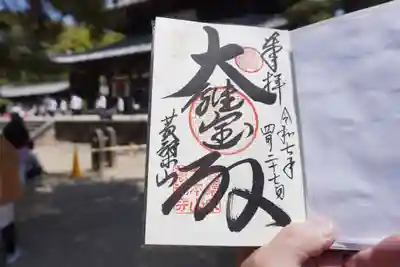 奉拝
令和七年
四月二十七日
大雄宝殿
黄檗山